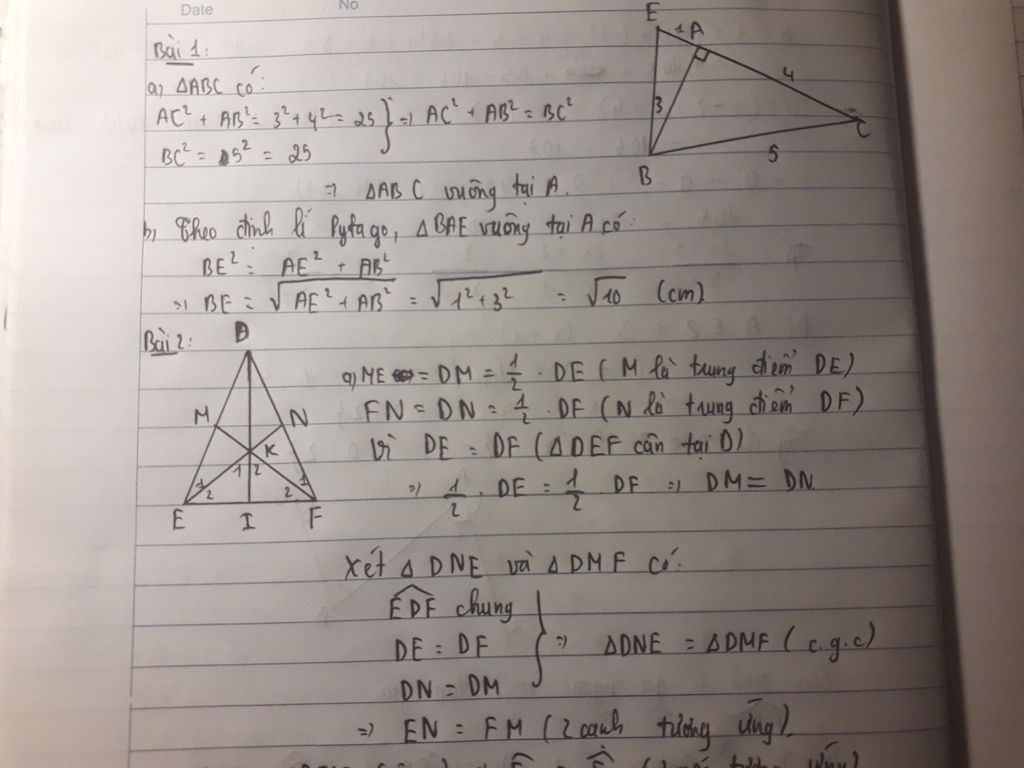 Date No
Bài 1:
a, ΔABC có:
AC² + AB² = 3² + 4² = 25 } => AC² + AB² = BC²
BC² = 5² = 25
=> ΔABC vuông tại A.
E
1 A
4
3
C
5
B
b, Theo định lí Pytago, ΔBAE vuông tại A có:
BE² = AE² + AB²
=> BE = √AE² + AB² = √1² + 3² = √10 (cm)
Bài 2:
D
M N
K
1 2
1 1
2 2
E I F
a, ME = DM = 1/2 . DE (M là trung điểm DE)
FN = DN = 1/2 . DF (N là trung điểm DF)
Vì DE = DF (ΔDEF cân tại D)
=> 1/2 . DE = 1/2 . DF => DM = DN
Xét ΔDNE và ΔDMF có:
EDF chung
DE = DF } => ΔDNE = ΔDMF (c.g.c)
DN = DM
=> EN = FM (2 cạnh tương ứng)